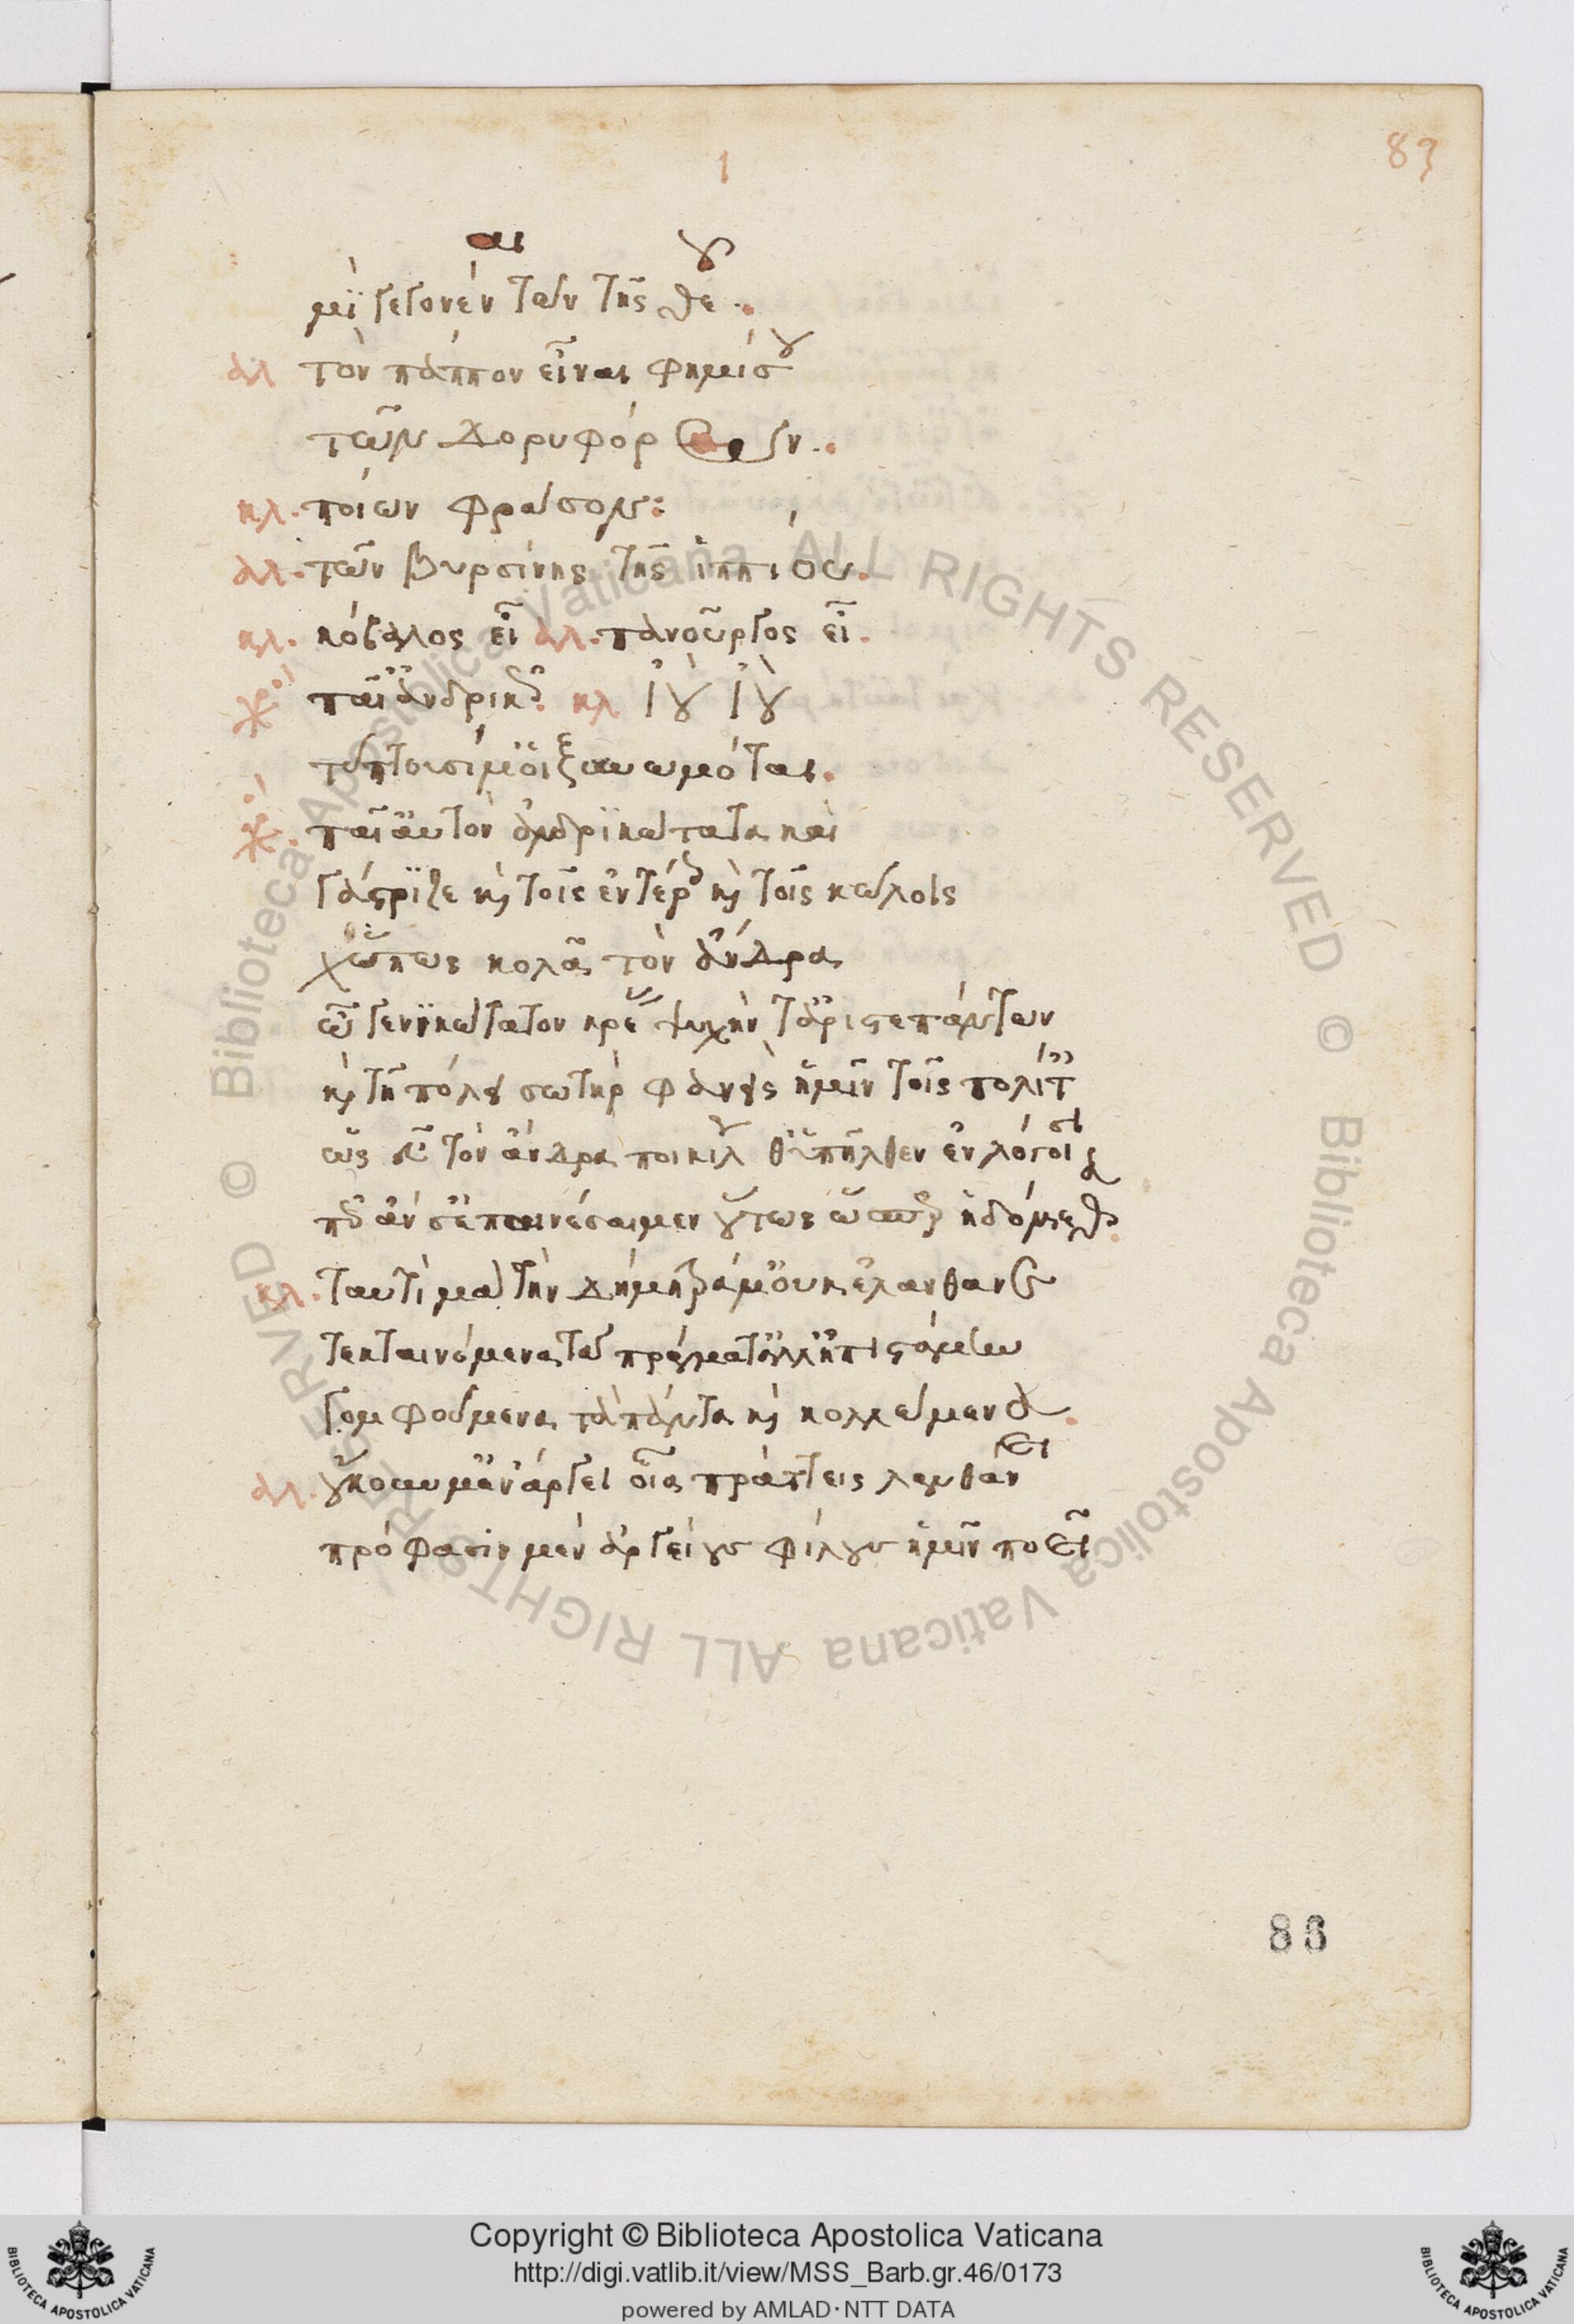 83
μί γεγονέναι τῶν τῆς θεοῦ.
ἀλ τὸν πάππον εἶναι φημί σου
τῶν δορυφόρων.
κλ. ποίων φράσον:
ἀλ. τῶν βυρσίνης τῆς ἱππίου.
κλ. κόβαλος εἶ ἀλ. πανοῦργος εἶ.
χορ παῖ ἀνδρικῶς. κλ ἰοὺ ἰοὺ
τύπτουσί μ' οἱ ξυνωμόται.
χορ. παῖ αὐτὸν ἀνδρικώτατα καὶ
γάστριζε καὶ τοῖς ἐντέροις καὶ τοῖς κώλοις
χὤπως κολᾷ τὸν ἄνδρα
ὦ γεννικώτατον κρέας ψυχήν τ' ἄριστε πάντων
καὶ τῇ πόλει σωτὴρ φανεὶς ἡμῖν τοῖς πολίταις
ὡς εὖ τὸν ἄνδρα ποικίλως θ' ὑπῆλθες ἐν λόγοισι
πῶς ἄν σ' ἐπαινέσαιμεν οὕτως ὥσπερ ἡδόμεσθα.
κλ. ταυτὶ μὰ τὴν Δήμητρά μ' οὐκ ἐλάνθανε
τεκταινόμενα τὰ πράγματ' ἀλλ' ἠπιστάμην
γομφούμενα τὰ πάντα καὶ κολλώμενα.
ἀλ. οὔκουν μ' ἐν ἄργει οἷα πράττεις λανθάνει
πρόφασιν μὲν ἀργείους φίλους ἡμῖν ποεῖ
86
Copyright © Biblioteca Apostolica Vaticana
http://digi.vatlib.it/view/MSS_Barb.gr.46/0173
powered by AMLAD·NTT DATA
© Biblioteca Apostolica Vaticana ALL RIGHTS RESERVED © Biblioteca Apostolica Vaticana ALL RIGHTS RESERVED
BIBLIOTECA APOSTOLICA VATICANA
BIBLIOTECA APOSTOLICA VATICANA